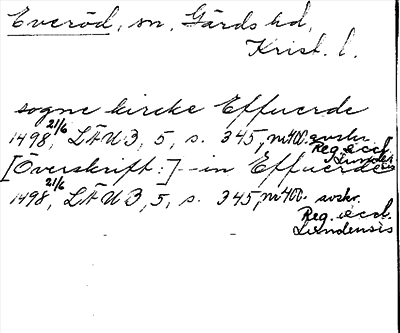 Everöd, sn, Gärds hd,
Krist. l.
sogne kircke Effuerde
1498 21/6, LÄUB, 5, s. 345, nr 400. avskr.
Reg. eccl.
Lundensis
[Överskrift:] -- in Effuerde
1498 21/6, LÄUB, 5, s. 345, nr 400. avskr.
Reg. eccl.
Lundensis